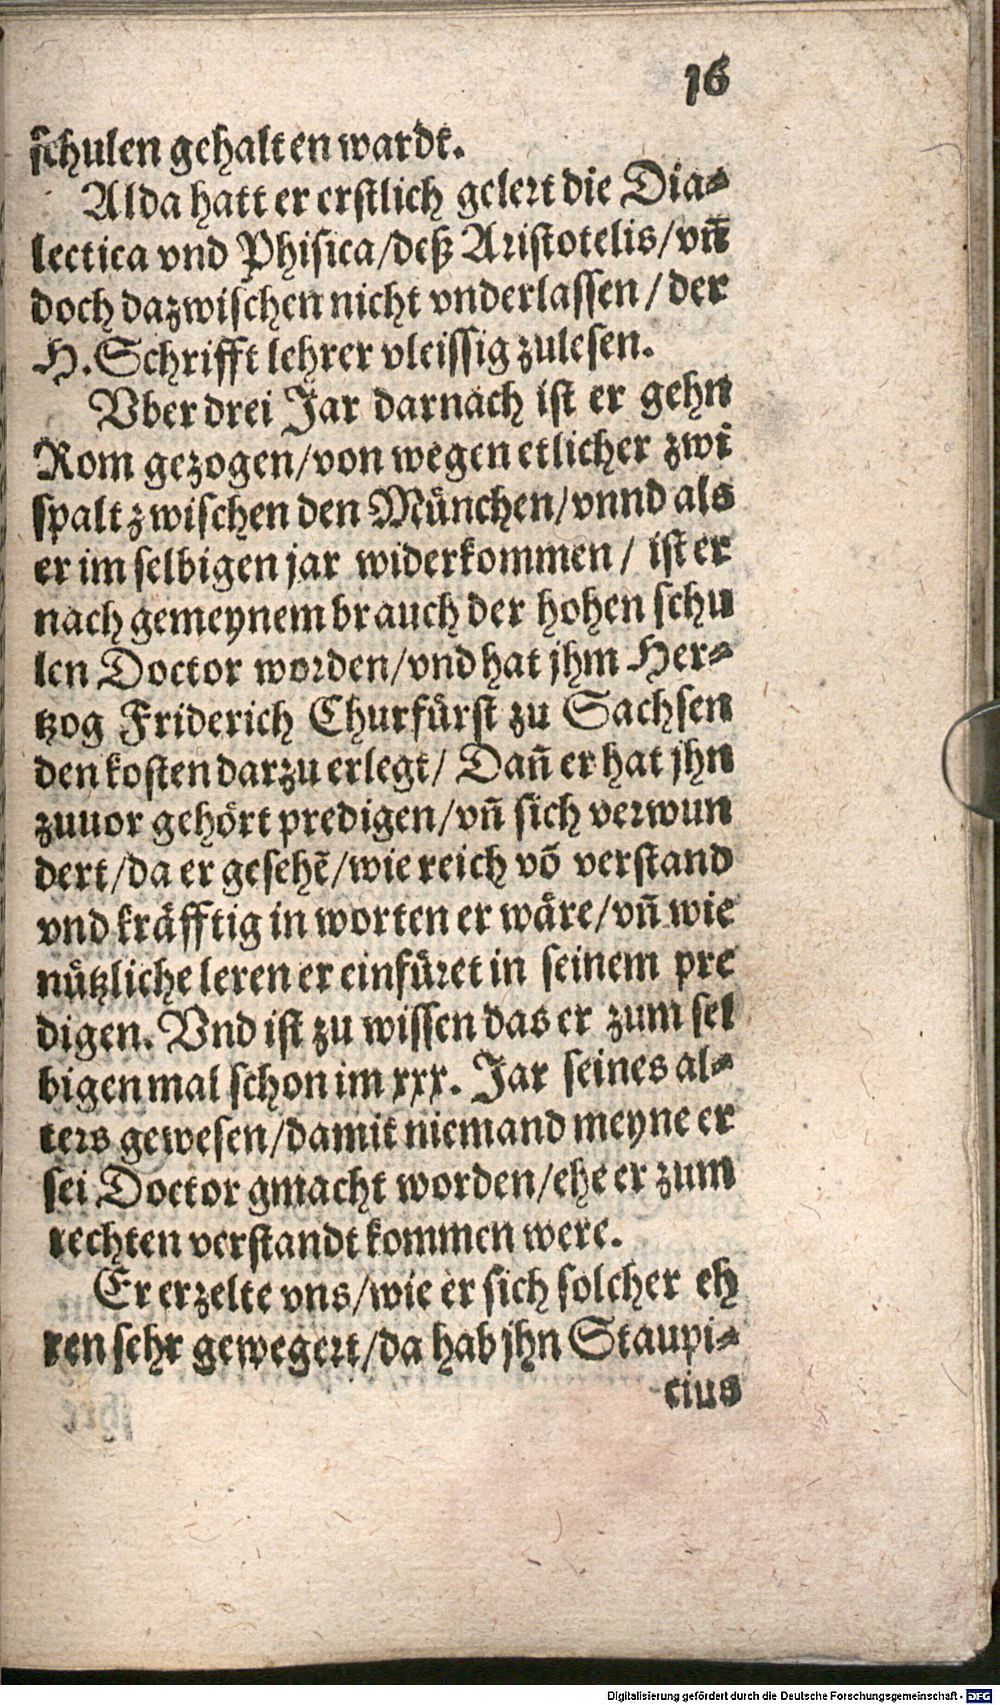 16
schulen gehalten wardt.
Alda hatt er erstlich gelert die Dia⸗
lectica vnd Phisica/deß Aristotelis/vñ
doch dazwischen nicht vnderlassen/der
H. Schrifft lehrer vleissig zulesen.
Vber drei Jar darnach ist er gehn
Rom gezogen/von wegen etlicher zwi
spalt zwischen den München/vnnd als
er im selbigen jar widerkommen/ ist er
nach gemeynem brauch der hohen schu
len Doctor worden/vnd hat jhm Her⸗
tzog Friderich Churfürst zu Sachsen
den kosten darzu erlegt/ Dañ er hat jhn
zuuor gehört predigen/vñ sich verwun
dert/da er gesehẽ/wie reich võ verstand
vnd kräfftig in worten er wäre/vñ wie
nützliche leren er einfüret in seinem pre
digen. Vnd ist zu wissen das er zum sel
bigen mal schon im xxx. Jar seines al⸗
ters gewesen/damit niemand meyne er
sei Doctor gmacht worden/ehe er zum
rechten verstandt kommen were.
Er erzelte vns/wie er sich solcher eh
ren sehr gewegert/da hab jhn Staupi⸗
cius
Digitalisierung gefördert durch die Deutsche Forschungsgemeinschaft - DFG